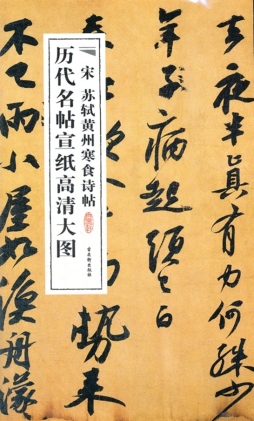 去夜半真有力何殊少
年子病起須已白
勢来
不已雨小屋如漁舟濛
宋 苏轼黄州寒食诗帖
历代名帖宣纸高清大图
古吴轩出版社